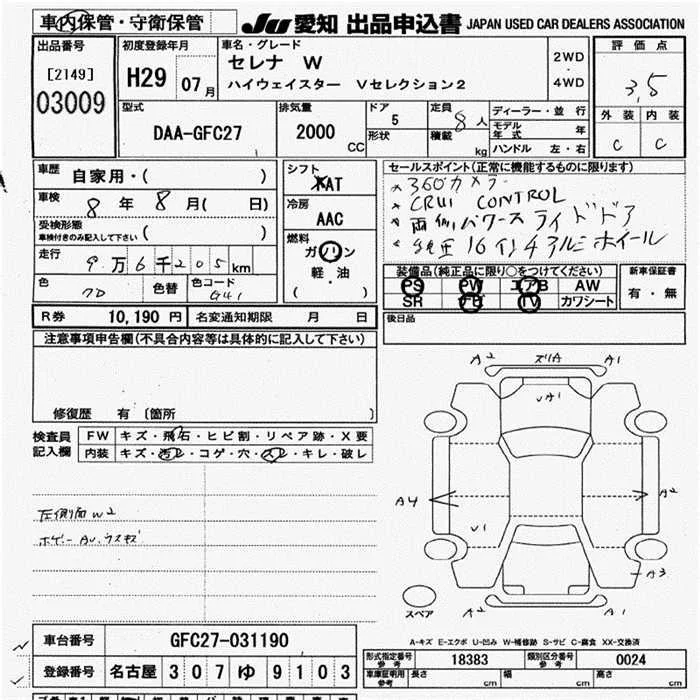 車内保管・守衛保管 JU 愛知 出品申込書 JAPAN USED CAR DEALERS ASSOCIATION
出品番号 [2149] 03009
初度登録年月 H29 07月
車名・グレード セレナ W
ハイウェイスター Vセレクション2
2WD・4WD
評価点 3.5
外装 内装
C C
型式 DAA-GFC27
排気量 2000 CC
ドア 5
形状
定員 8人
積載 kg
ディーラー・並行
モデル年式 年
ハンドル 左・右
車歴 自家用・( )
車検 8年 8月( 日)
受検形態
車検付きのみ記入して下さい ( )
走行 9万6千205km
色 色替 色コード G41
シフト AT
冷房 AAC
燃料 ガソリン
軽・油
( )
セールスポイント(正常に機能するものに限ります)
* 360カメラ
* CRUI CONTROL
* 両側パワースライドドア
* 純正16インチアルミホイール
装備品(純正品に限り○をつけてください)
PS PW エアB AW
SR ナビ TV カワシート
新車保証書
有・無
R券 10,190円 名変通知期限 月 日
後日品
注意事項申告欄(不具合内容等は具体的に記入して下さい)
修復歴 有 〔箇所 〕
検査員記入欄
FW キズ・飛石・ヒビ割・リペア跡・X要
内装 キズ・汚レ・コゲ・穴・スレ・キレ・破レ
左側面W2
ボデーAU.ウスキズ
A2 ズリA A1
UA1
A4 A2
U1
A3
A2 A1
スペア
A-キズ E-エクボ U-凹み W-補修跡 S-サビ C-腐食 XX-交換済
車台番号 GFC27-031190
登録番号 名古屋 307 ゆ 9103
形式指定番号 参考 18383 類別区分番号 参考 0024
車庫証明用 参考 長さ cm 幅 cm 高さ cm